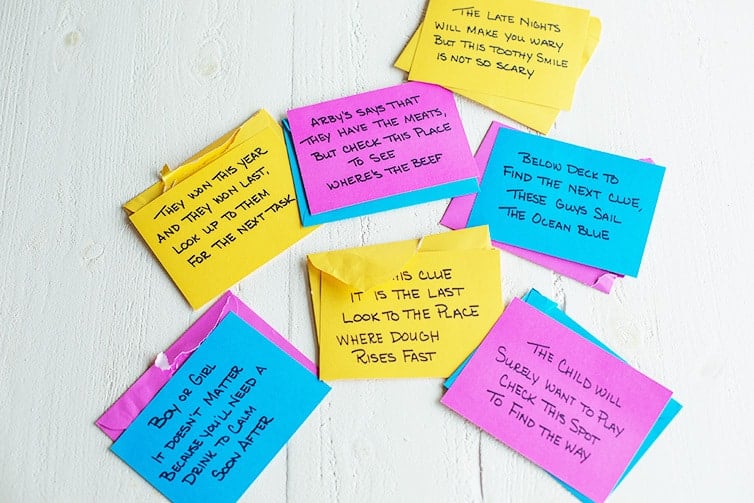 The Late Nights
Will Make You Wary
But This Toothy Smile
Is Not So Scary
Arby's Says That
They Have The Meats,
But Check This Place
To See
Where's The Beef
Below Deck To
Find The Next Clue,
These Guys Sail
The Ocean Blue
They Won This Year
And They Won Last,
Look Up To Them
For The Next Task
Clue
It Is The Last
Look To The Place
Where Dough
Rises Fast
The Child Will
Surely Want To Play
Check This Spot
To Find The Way
Boy Or Girl
It Doesn't Matter
Because You'll Need A
Drink To Calm
Soon After